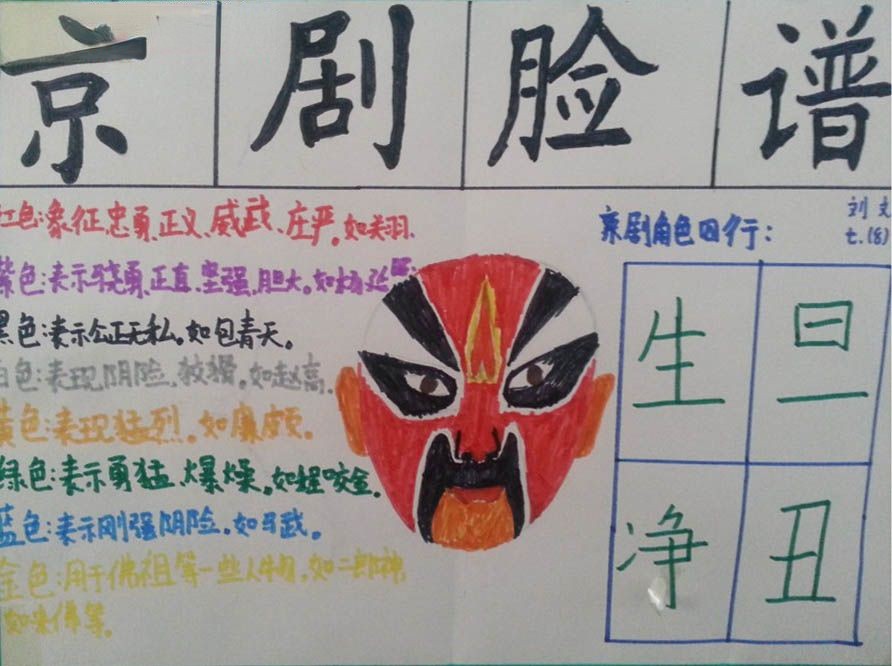 京剧脸谱
红色:象征忠勇、正义、威武、庄严。如关羽.
紫色:表示骁勇、正直、坚强、胆大。如杨延昭.
黑色:表示公正无私。如包青天。
白色:表现阴险、狡猾。如赵高.
黄色:表现猛烈。如廉颇。
绿色:表示勇猛、爆燥。如程咬金.
蓝色:表示刚强阴险。如马武。
金色:用于佛祖等一些人物,如二郎神、
如来佛等。
刘文
七.(8)
京剧角色四行:
生 旦
净 丑